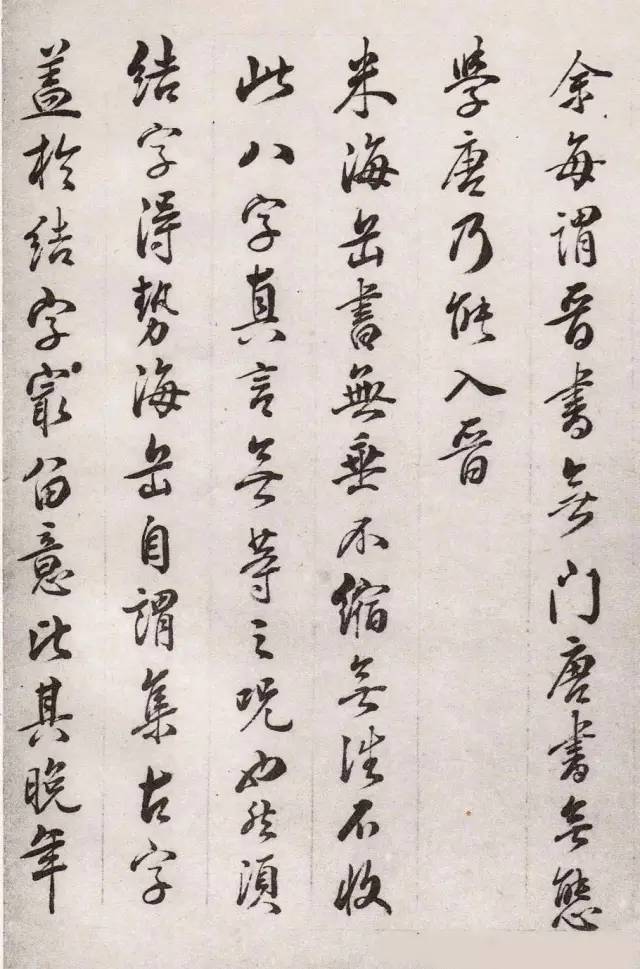 余每謂晉書無門唐書無態
學唐乃能入晉
米海岳書無垂不縮無往不收
此八字真言無等之咒也然須
結字得勢海岳自謂集古字
蓋於結字最留意比其晚年